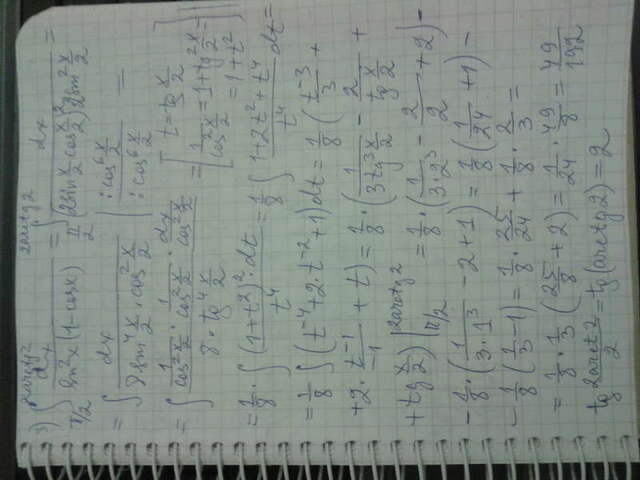 3) ∫_{π/2}^{2arctg2} dx / (sin²x (1-cosx)) = ∫_{π/2}^{2arctg2} dx / ((2sin x/2 · cos x/2)² 2sin² x/2) =
= ∫ dx / (8sin⁴ x/2 · cos² x/2) | :cos⁶ x/2 / :cos⁶ x/2 | =
= ∫ (1/cos² x/2 · 1/cos² x/2 · dx/cos² x/2) / (8 · tg⁴ x/2) = [t = tg x/2; 1/cos² x/2 = 1+tg² x/2 = 1+t²]
= 1/8 · ∫ (1+t²)² · dt / t⁴ = 1/8 ∫ (1+2t²+t⁴) / t⁴ dt =
= 1/8 ∫ (t⁻⁴ + 2·t⁻² + 1) dt = 1/8 · (t⁻³/3 +
+ 2 · t⁻¹/-1 + t) = 1/8 · (1/(3tg³ x/2) - 2/(tg x/2) +
+ tg x/2) |_{π/2}^{2arctg2} = 1/8 · (1/(3·2³) - 2/2 + 2) -
- 1/8 · (1/(3·1³) - 2 + 1) = 1/8 (1/24 + 1) -
- 1/8 (1/3 - 1) = 1/8 · 25/24 + 1/8 · 2/3 =
= 1/8 · 1/3 (25/8 + 2) = 1/24 · 49/8 = 49/192
tg 2arctg2/2 = tg(arctg2) = 2